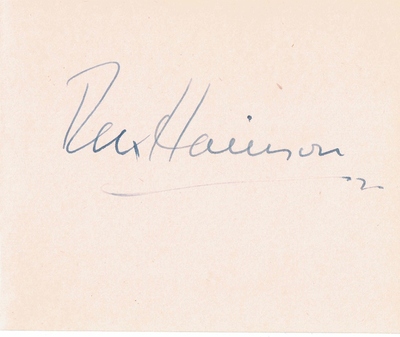 Rex Harrison